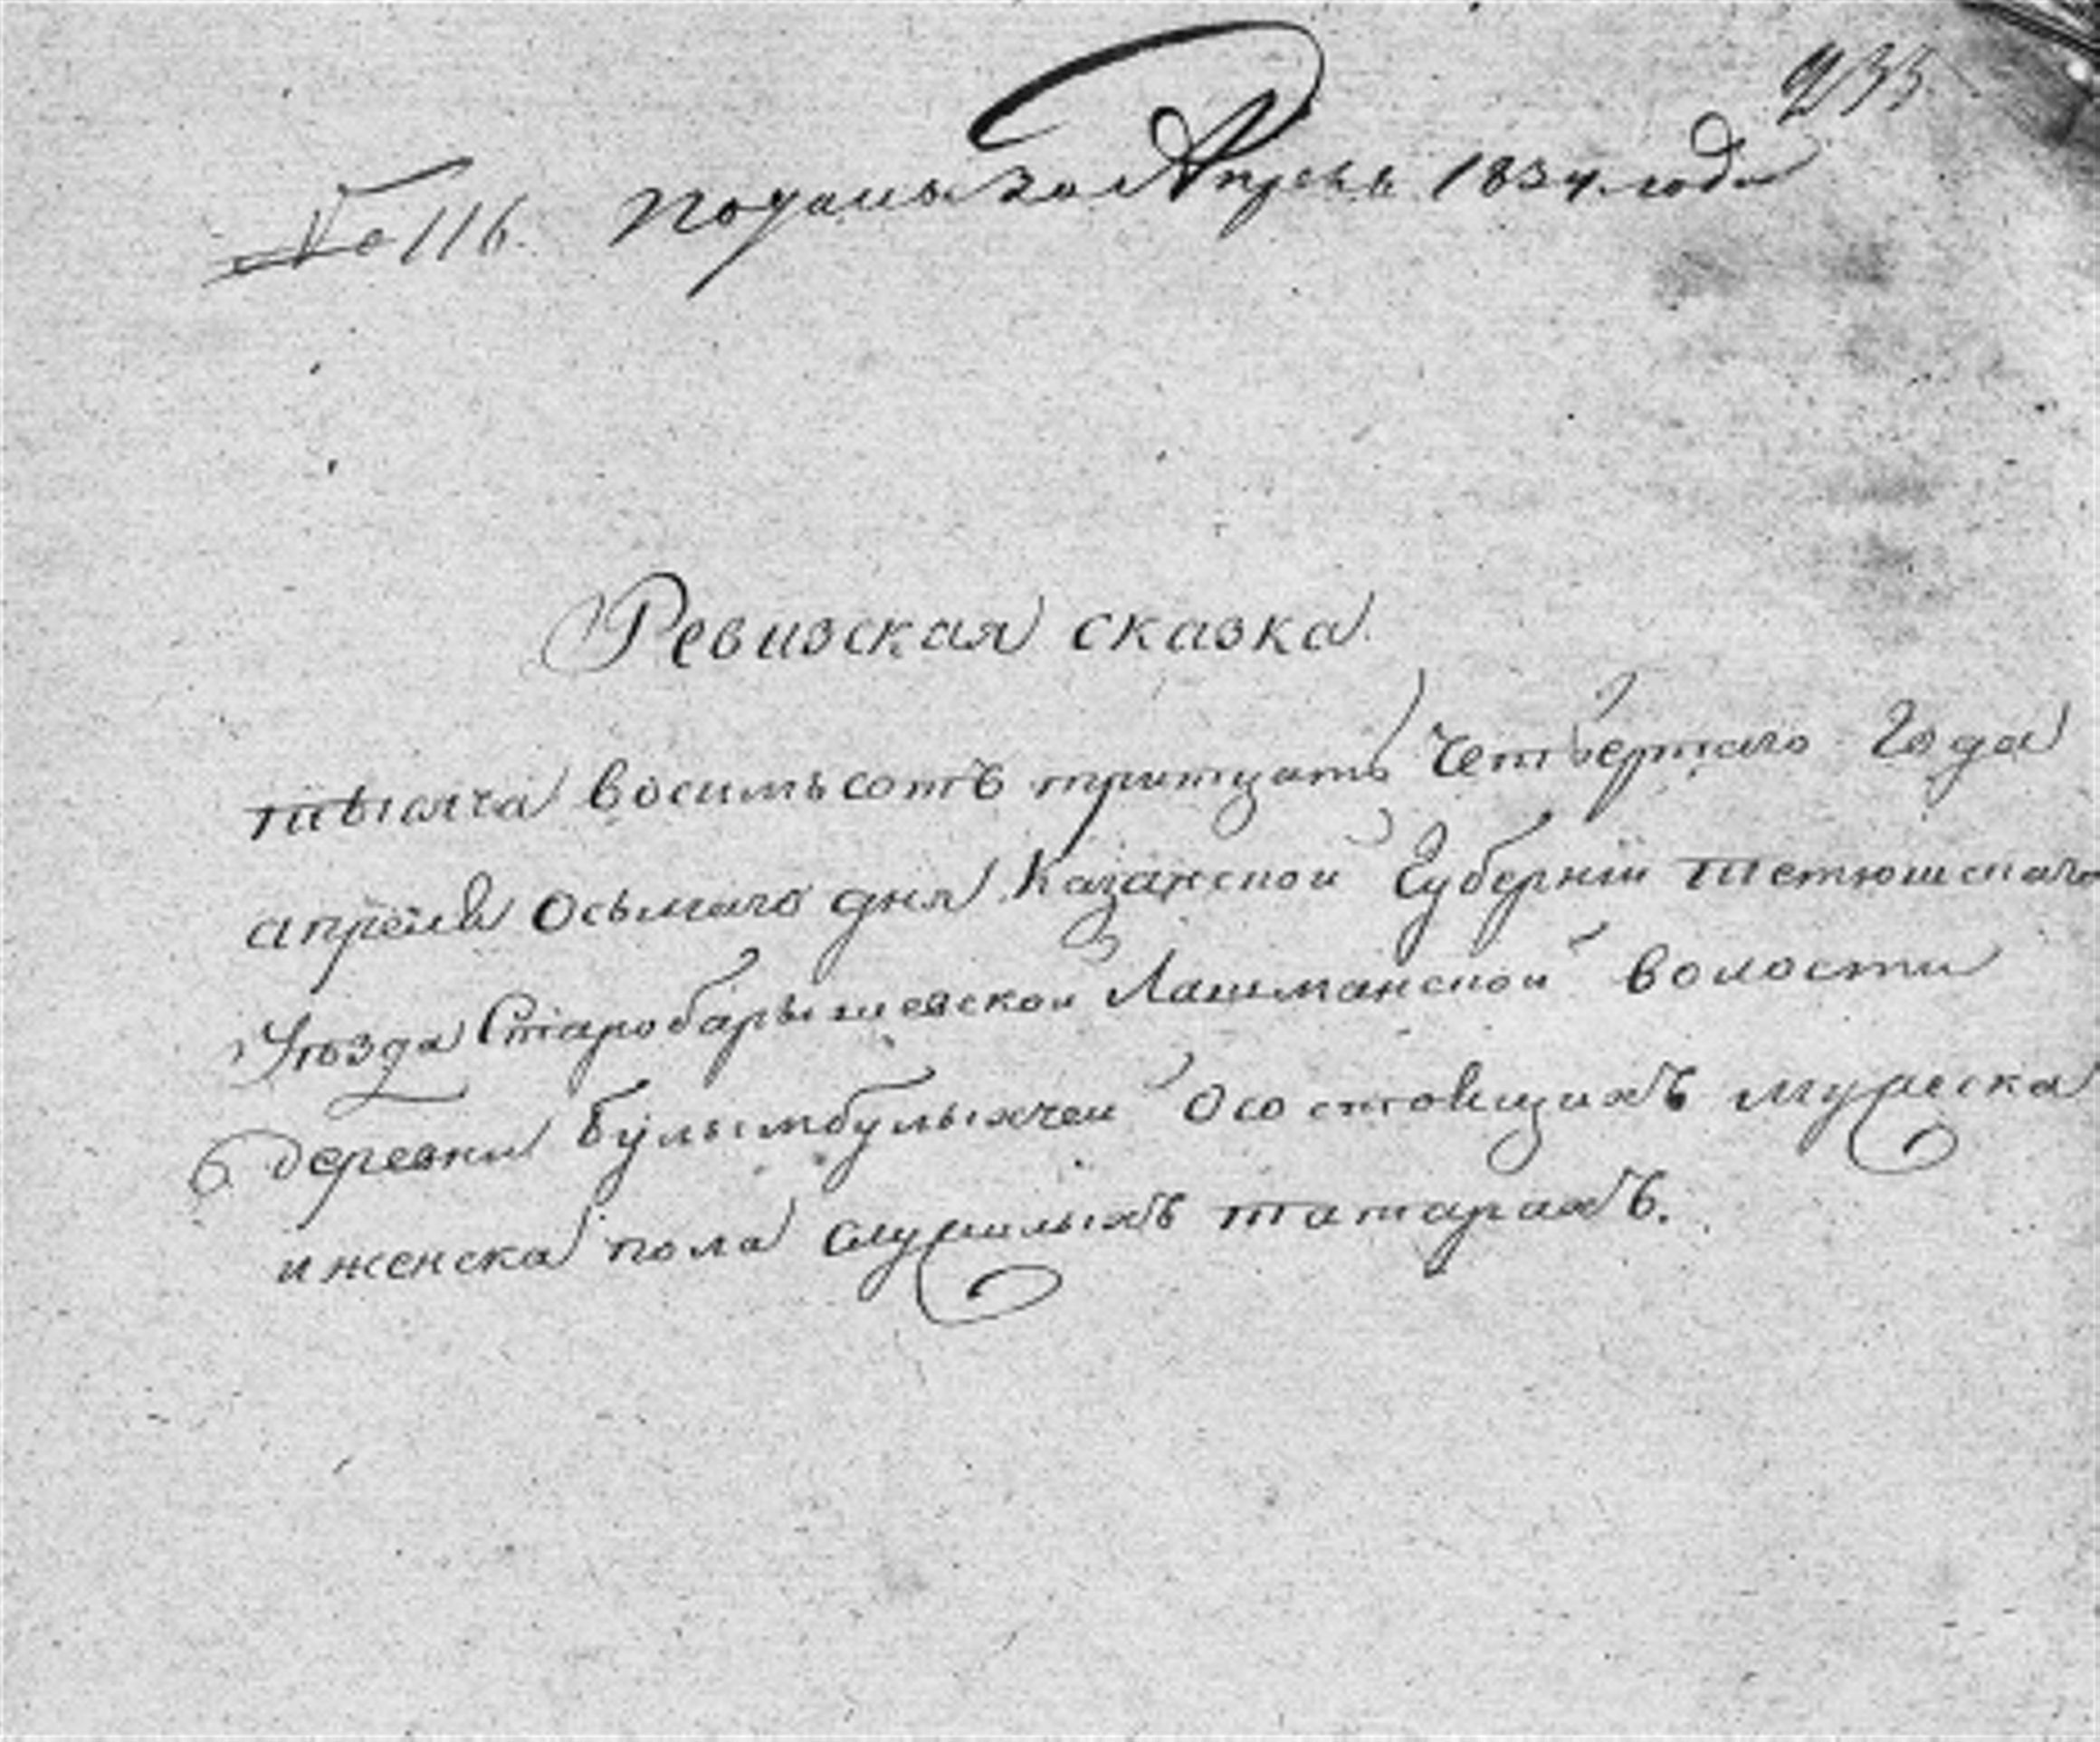 233
№ 116. Поданы 30 Апреля 1834 года
Ревизская сказка
тысяча восимьсотъ тритцать четвертаго Года
апреля осьмаго дня Казанской Губернïи тетюшскаго
Уѣзда Старобарышевской Лашманской волости
деревни Булымбулыхчеи Осостоящихъ мужеска
и женска пола служилыхъ татарахъ.